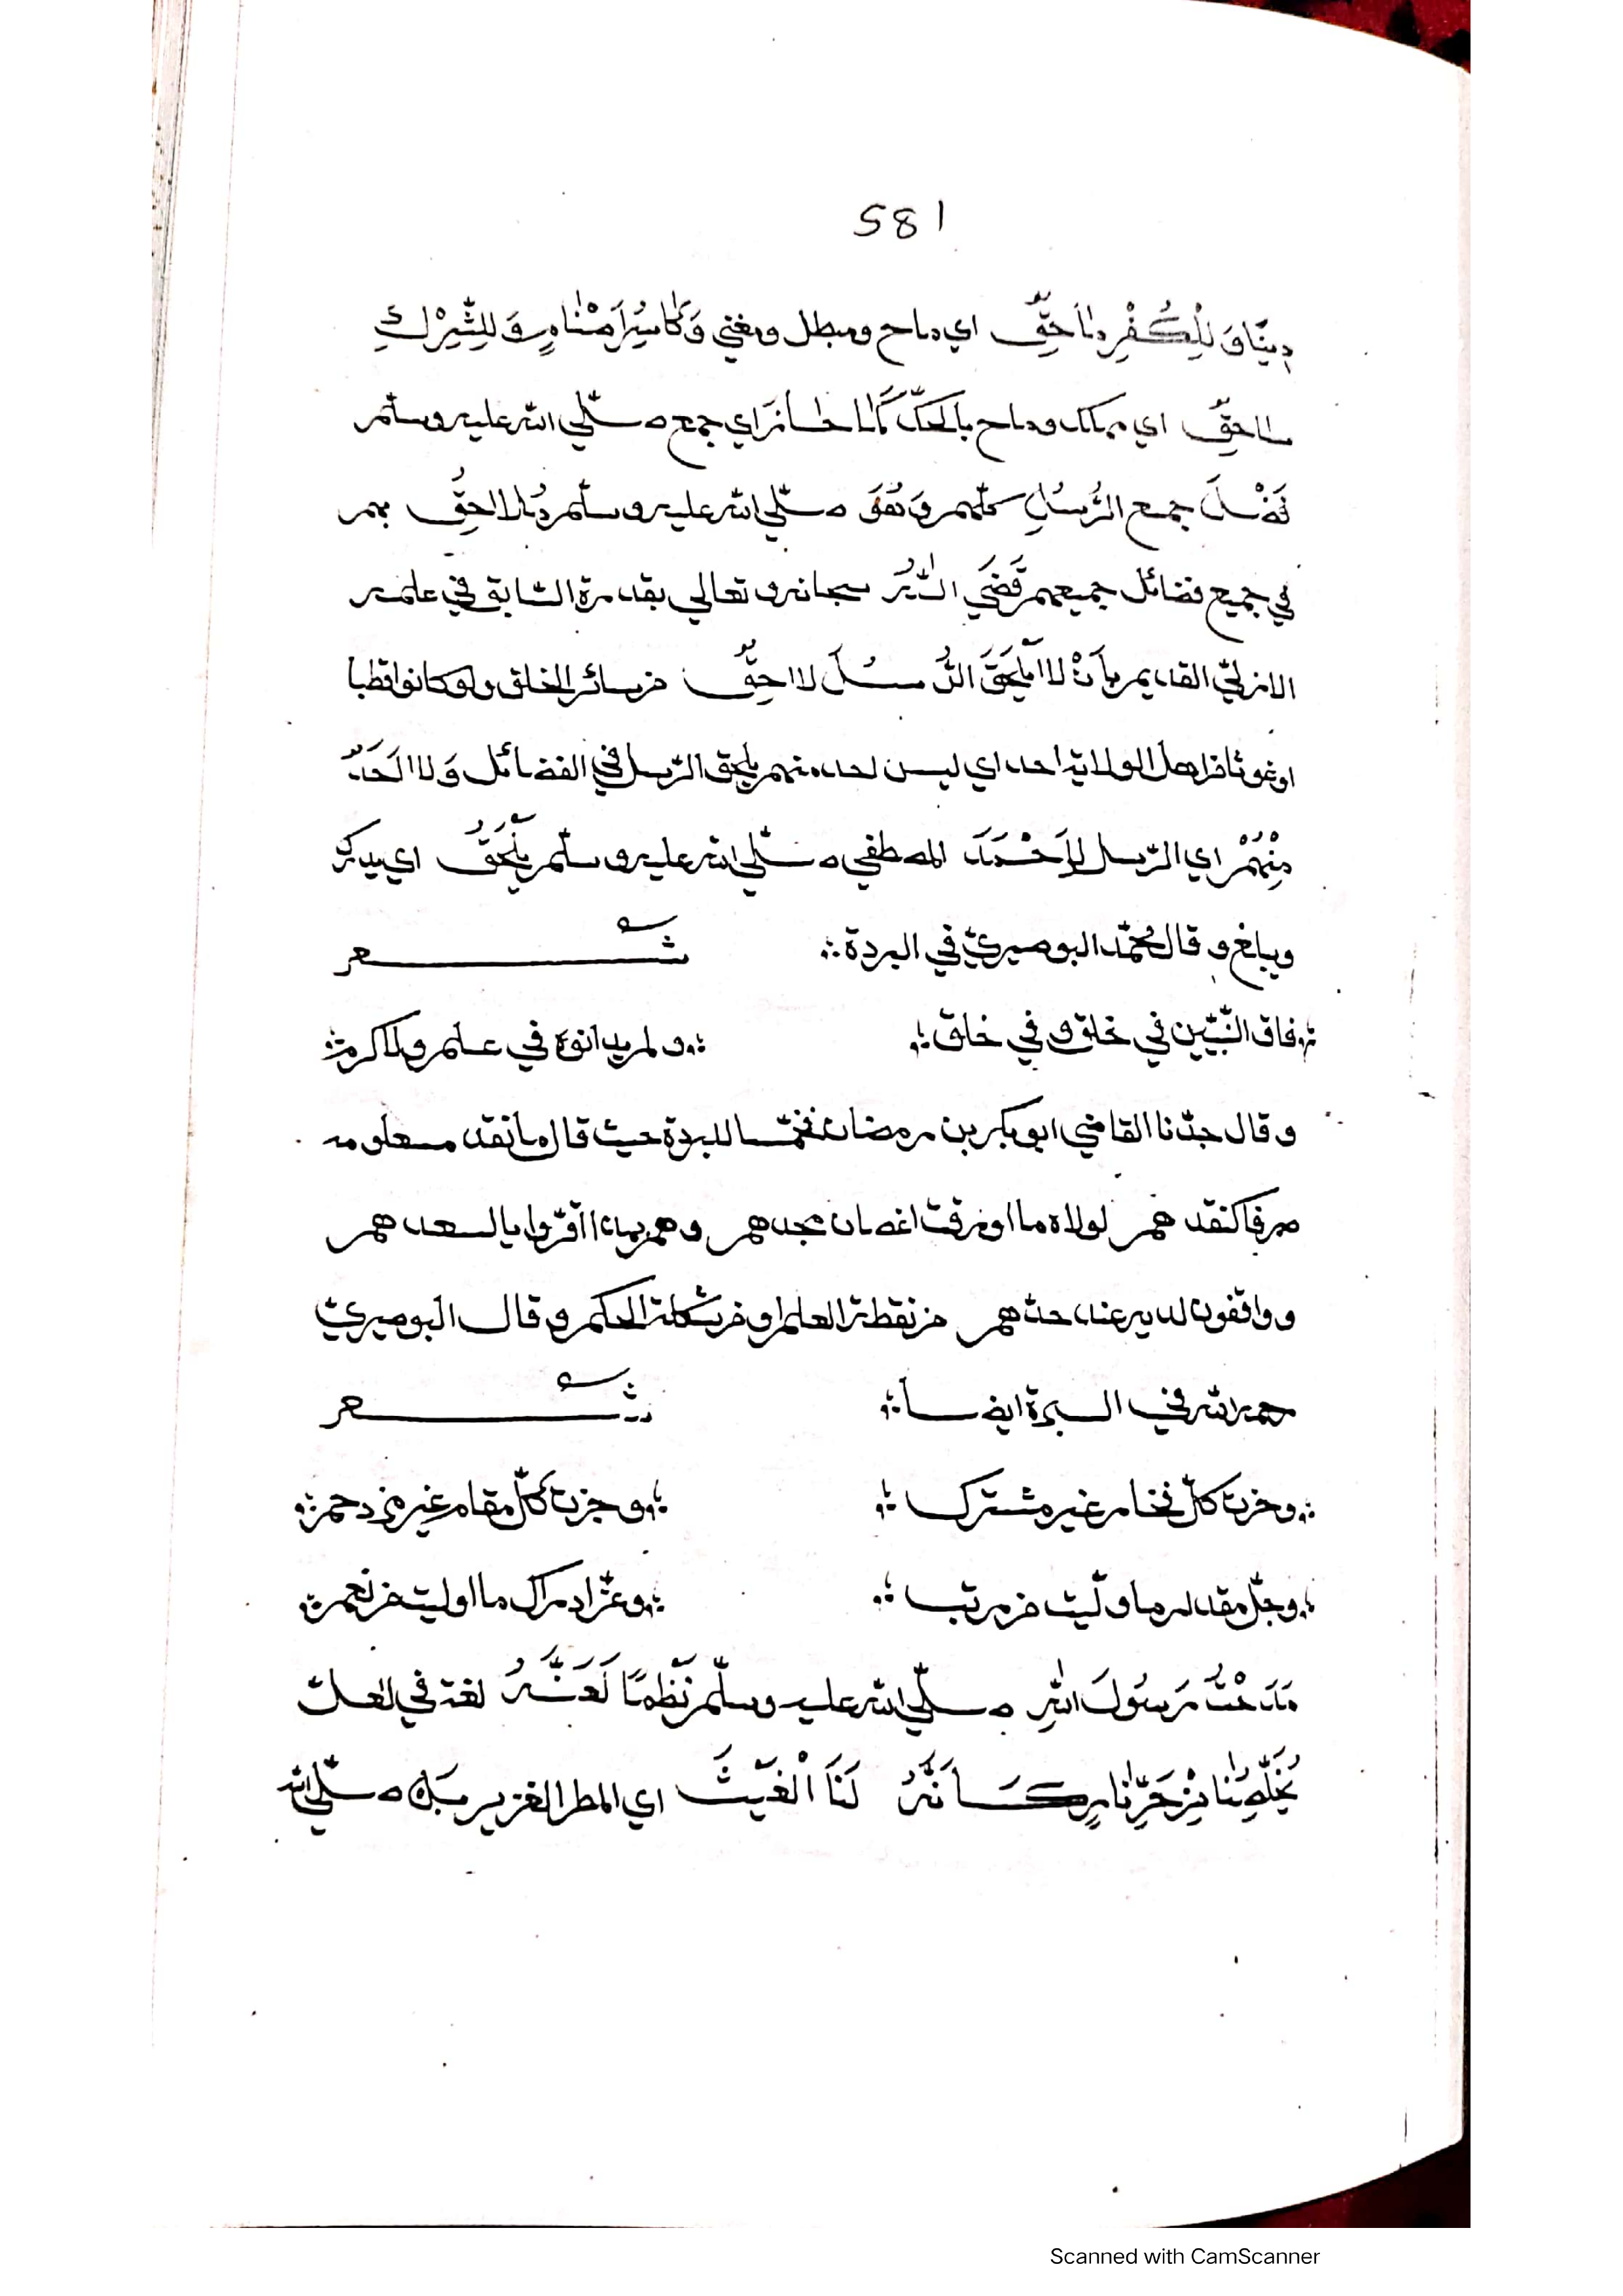 581
دِينًا وَلِلْكُفْرِ مَاحِقٌ اي ماح ومبطل ومغني وَكَاسِرُ أَصْنَامٍ وَلِلشِّرْكِ
مَاحِقٌ اي مهلك وماح بالحكّ كما حاز اي جمع صلّي الله عليه وسلّم
فَضْلَ جميع الرُّسُلِ كلّهم وَهُوَ صلّي الله عليه وسلّم لاحِقٌ بهم
في جميع فضائل جميعهم قَضَي الله سبحانه وتعالي بقدرة السّابق في علمه
الازليّ القديم بأَنْ لا يَلْحَقَ الرُّسُلَ لاحِقٌ من سائر الخلق ولو كانوا قطبا
او غوثا من اهل الولاية احد اي ليس احد منهم يلحق الرّسل في الفضائل وَلا احَدٌ
مِنْهُمْ اي الرّسل لِأَحْمَدَ المصطفي صلّي الله عليه وسلّم يَلْحَقُ اي يدرك
ويبلغ وقال محمّد البوصيريّ في البردة
شعر
فاق النّبيّين في خلق وفي خلق ولم يدانوه في علم ولا كرم
وقال جدّنا القاضي ابو بكر بن رمضان مخمّسا للبردة حيث قال ما نقد معلومه
صرفا كنقدهم لولاه ما اورقت اغصان مجدهم وهم بهذا اقرّوا يا لسعدهم
وواقفون لديه عند حدّهم من نقطة العلم او من شكلة الحكم وقال البوصيريّ
رحمه الله في البردة ايضا
شعر
وحزت كلّ فخار غير مشترك وجزت كلّ مقام غير مزدحم
وجلّ مقدار ما ولّيت من رتب وعزّ ادراك ما اوليت من نعم
مَدَحْتُ رَسُولَ اللهِ صلّي الله عليه وسلّم نَظْمًا لَعَنَّهُ لغة في لعلّ
يُخَلِّصُنَا مِنْ حَرِّ نَارٍ كَأَنَّهُ لَنَا الْغَيْثُ اي المطر الغزير صلّي الله
Scanned with CamScanner